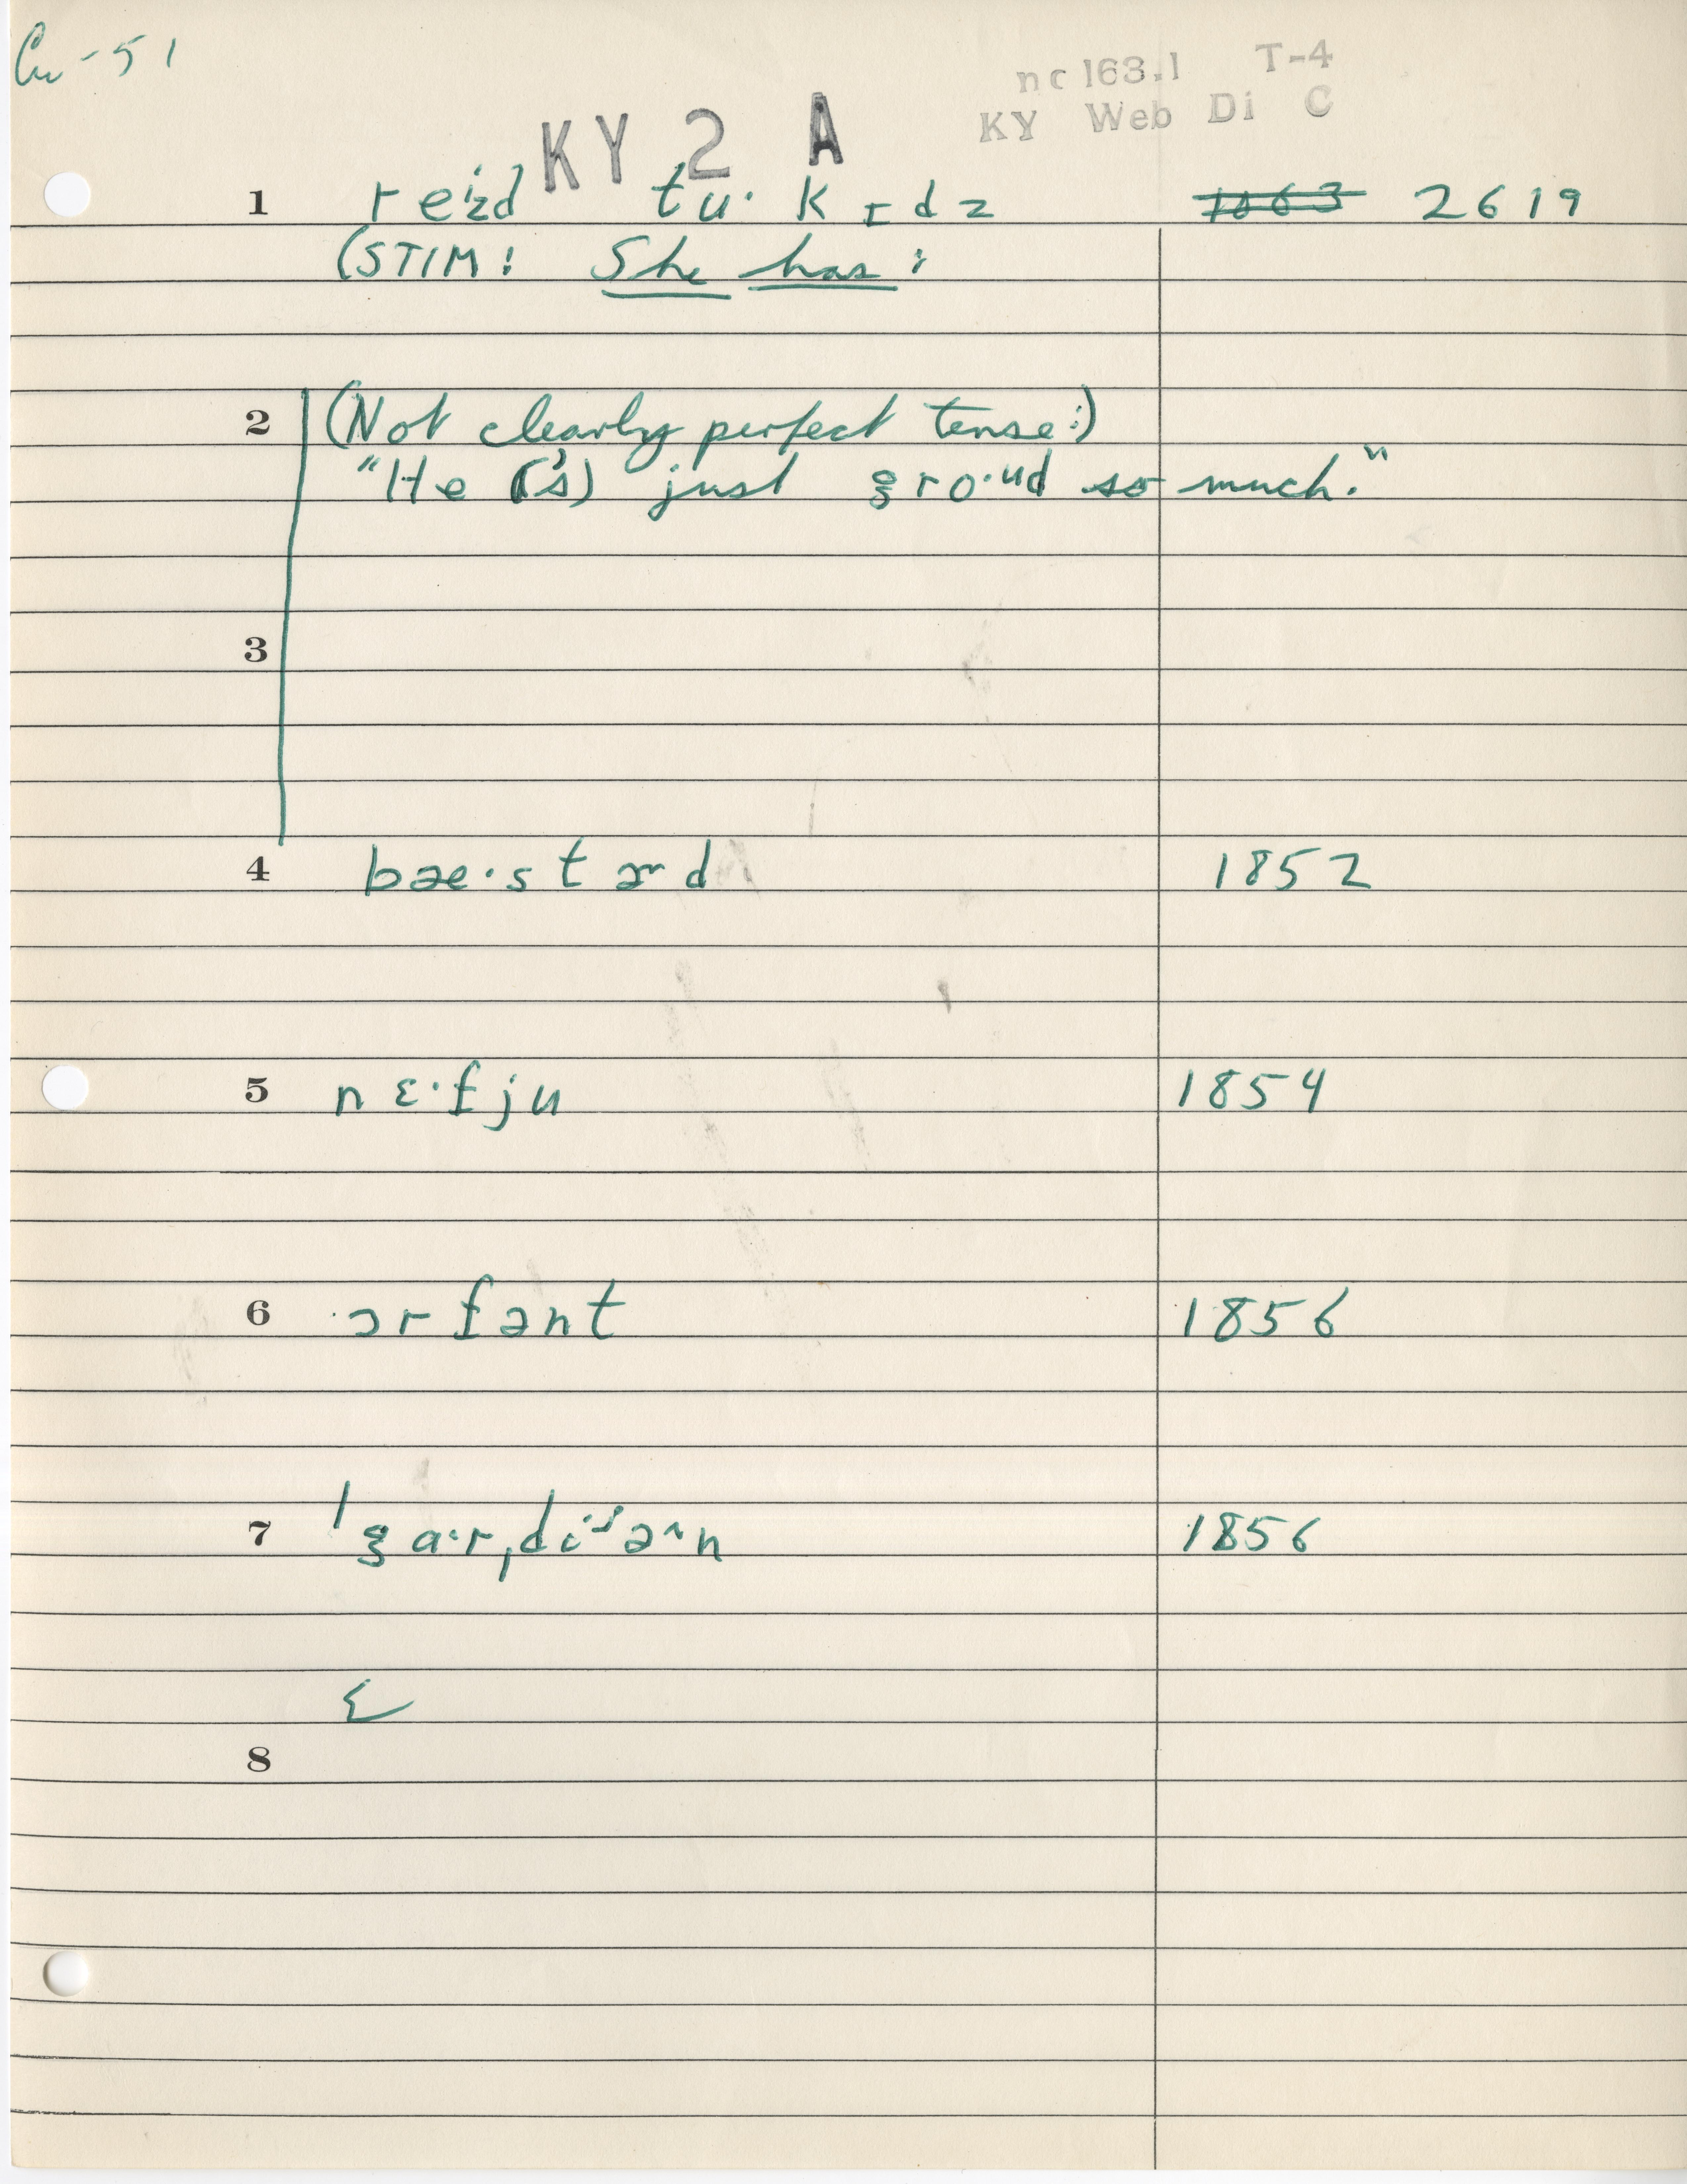 Cu-51
nc 163.1 T-4
KY Web Di C
KY 2 A
1 reɪd tu· kɪdz 1063 2619
(STIM: She has:
2 (Not clearly perfect tense:)
"He ('s) just gro·ud so much."
3
4 bæ·stɚd 1852
5 nɛ·fju 1854
6 ɔrfənt 1856
7 ˈga·rˌdiən 1856
8